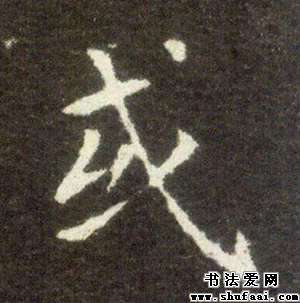 或
书法爱网
www.shufaai.com